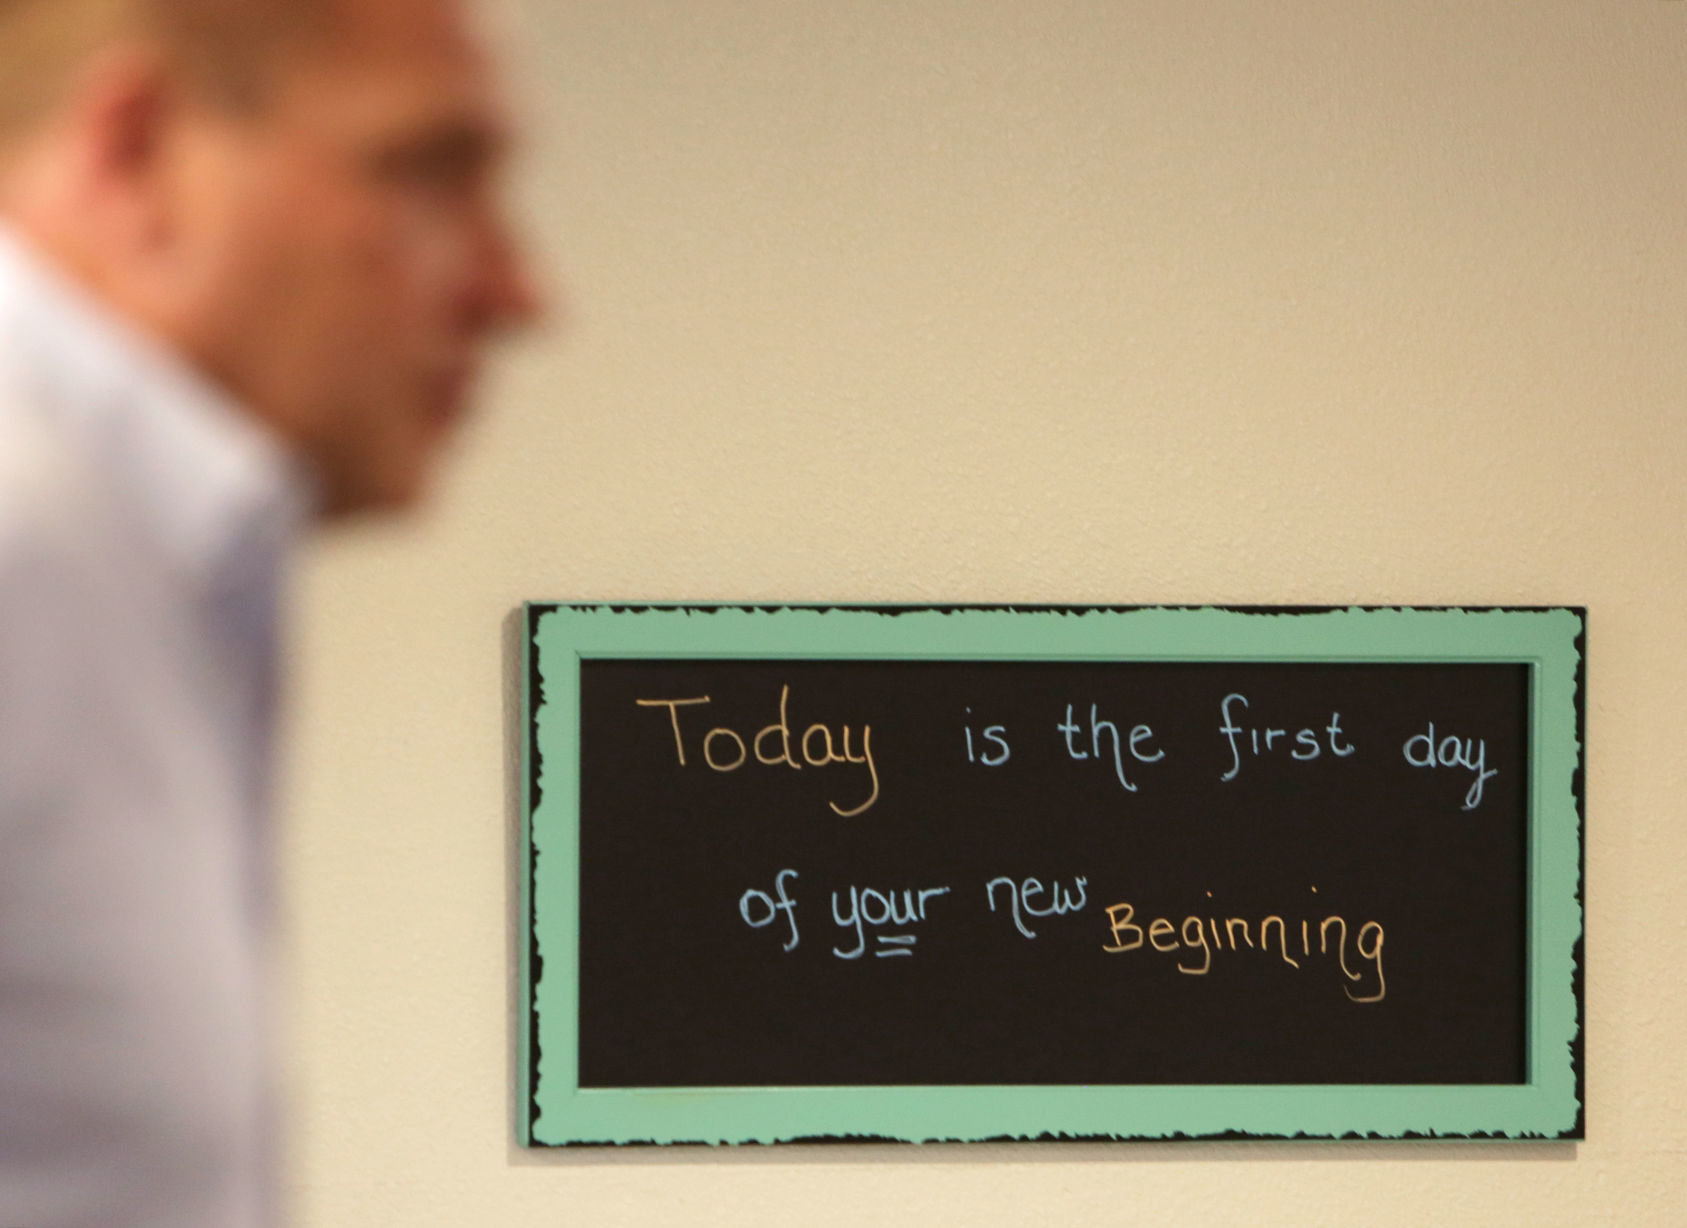 Today is the first day
of your new Beginning